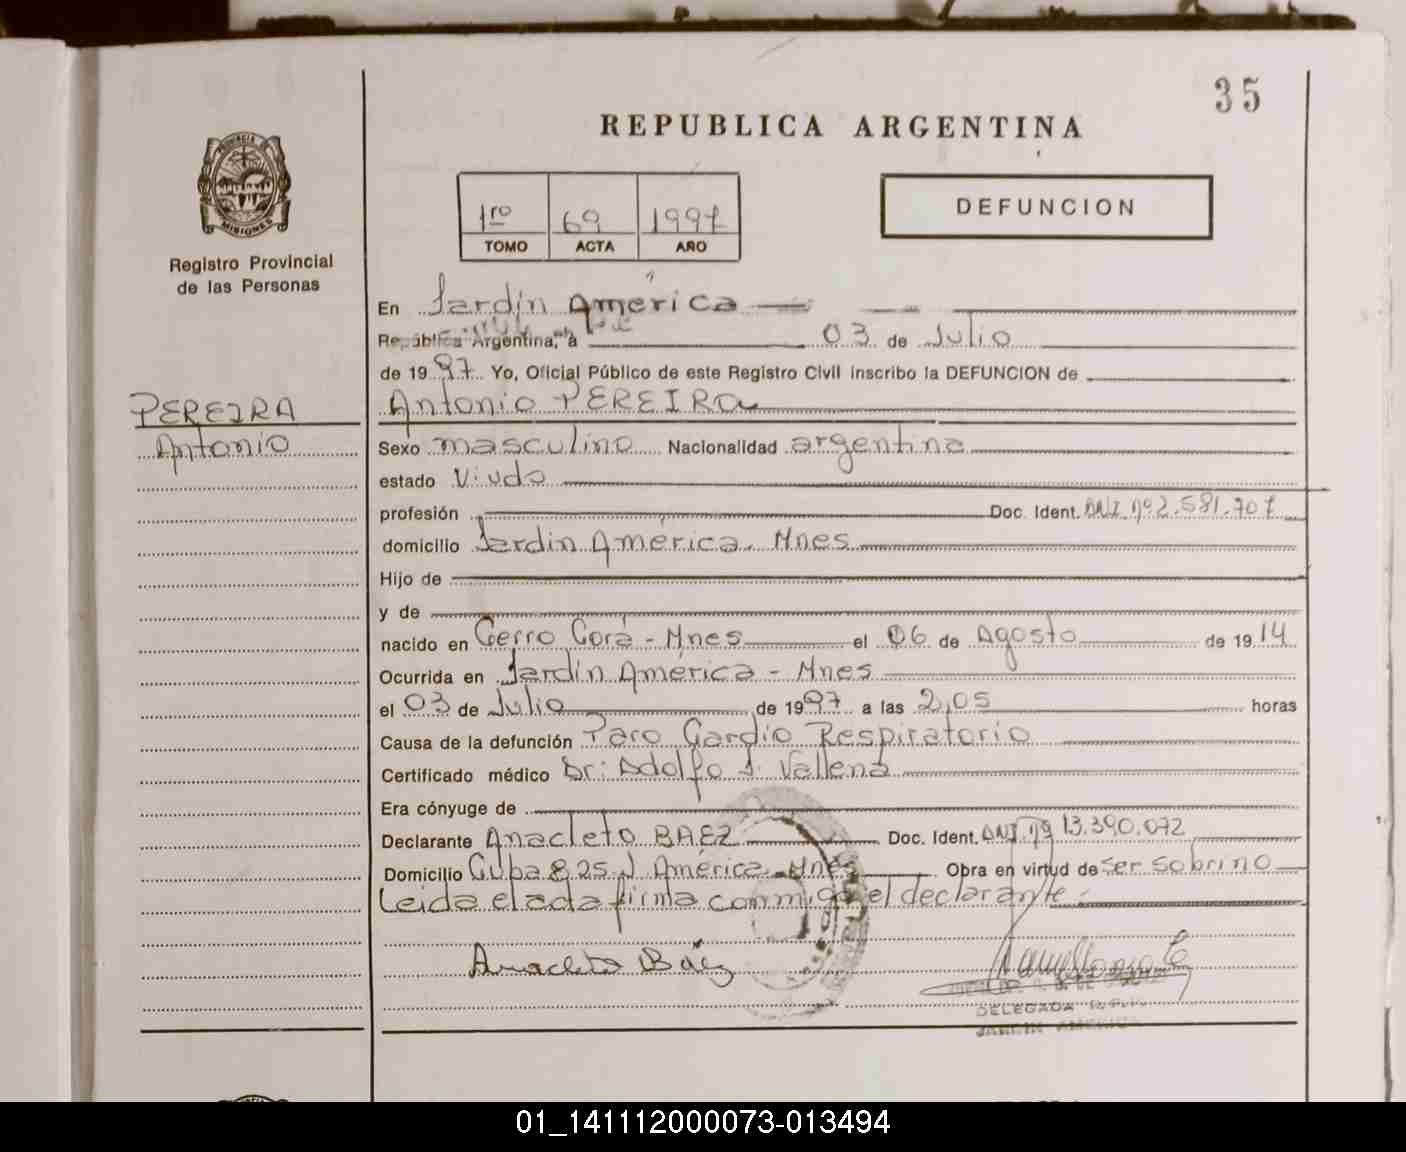 35
REPUBLICA ARGENTINA
PROVINCIA DE
MISIONES
Registro Provincial
de las Personas
1ro 69 1997
TOMO ACTA AÑO
DEFUNCION
En Jardín América
República Argentina, a 03 de Julio
de 1997 Yo, Oficial Público de este Registro Civil inscribo la DEFUNCION de
PEREIRA
Antonio
Antonio PEREIRA
Sexo masculino Nacionalidad argentina
estado Viudo
profesión Doc. Ident. DNI nº 2.581.707
domicilio Jardín América. Mnes
Hijo de
y de
nacido en Cerro Corá - Mnes el 06 de Agosto de 1914
Ocurrida en Jardín América - Mnes
el 03 de Julio de 1997 a las 2,05 horas
Causa de la defunción Paro Cardio Respiratorio
Certificado médico Dr: Adolfo J. Vallena
Era cónyuge de
Declarante Anacleto BAEZ Doc. Ident. DNI nº 13.390.072
Domicilio Cuba 825 J. América - Mnes Obra en virtud de ser sobrino
Leida el acta firma conmigo el declarante
Anacleto Báez
DELEGADA
JARDIN AMERICA
01_141112000073-013494